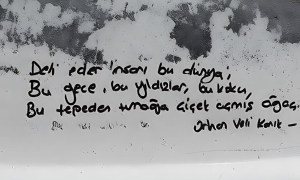 Deli eder insanı bu dünya;
Bu gece, bu yıldızlar, bu koku,
Bu tepeden tırnağa çiçek açmış ağaç.
Orhan Veli Kanık -